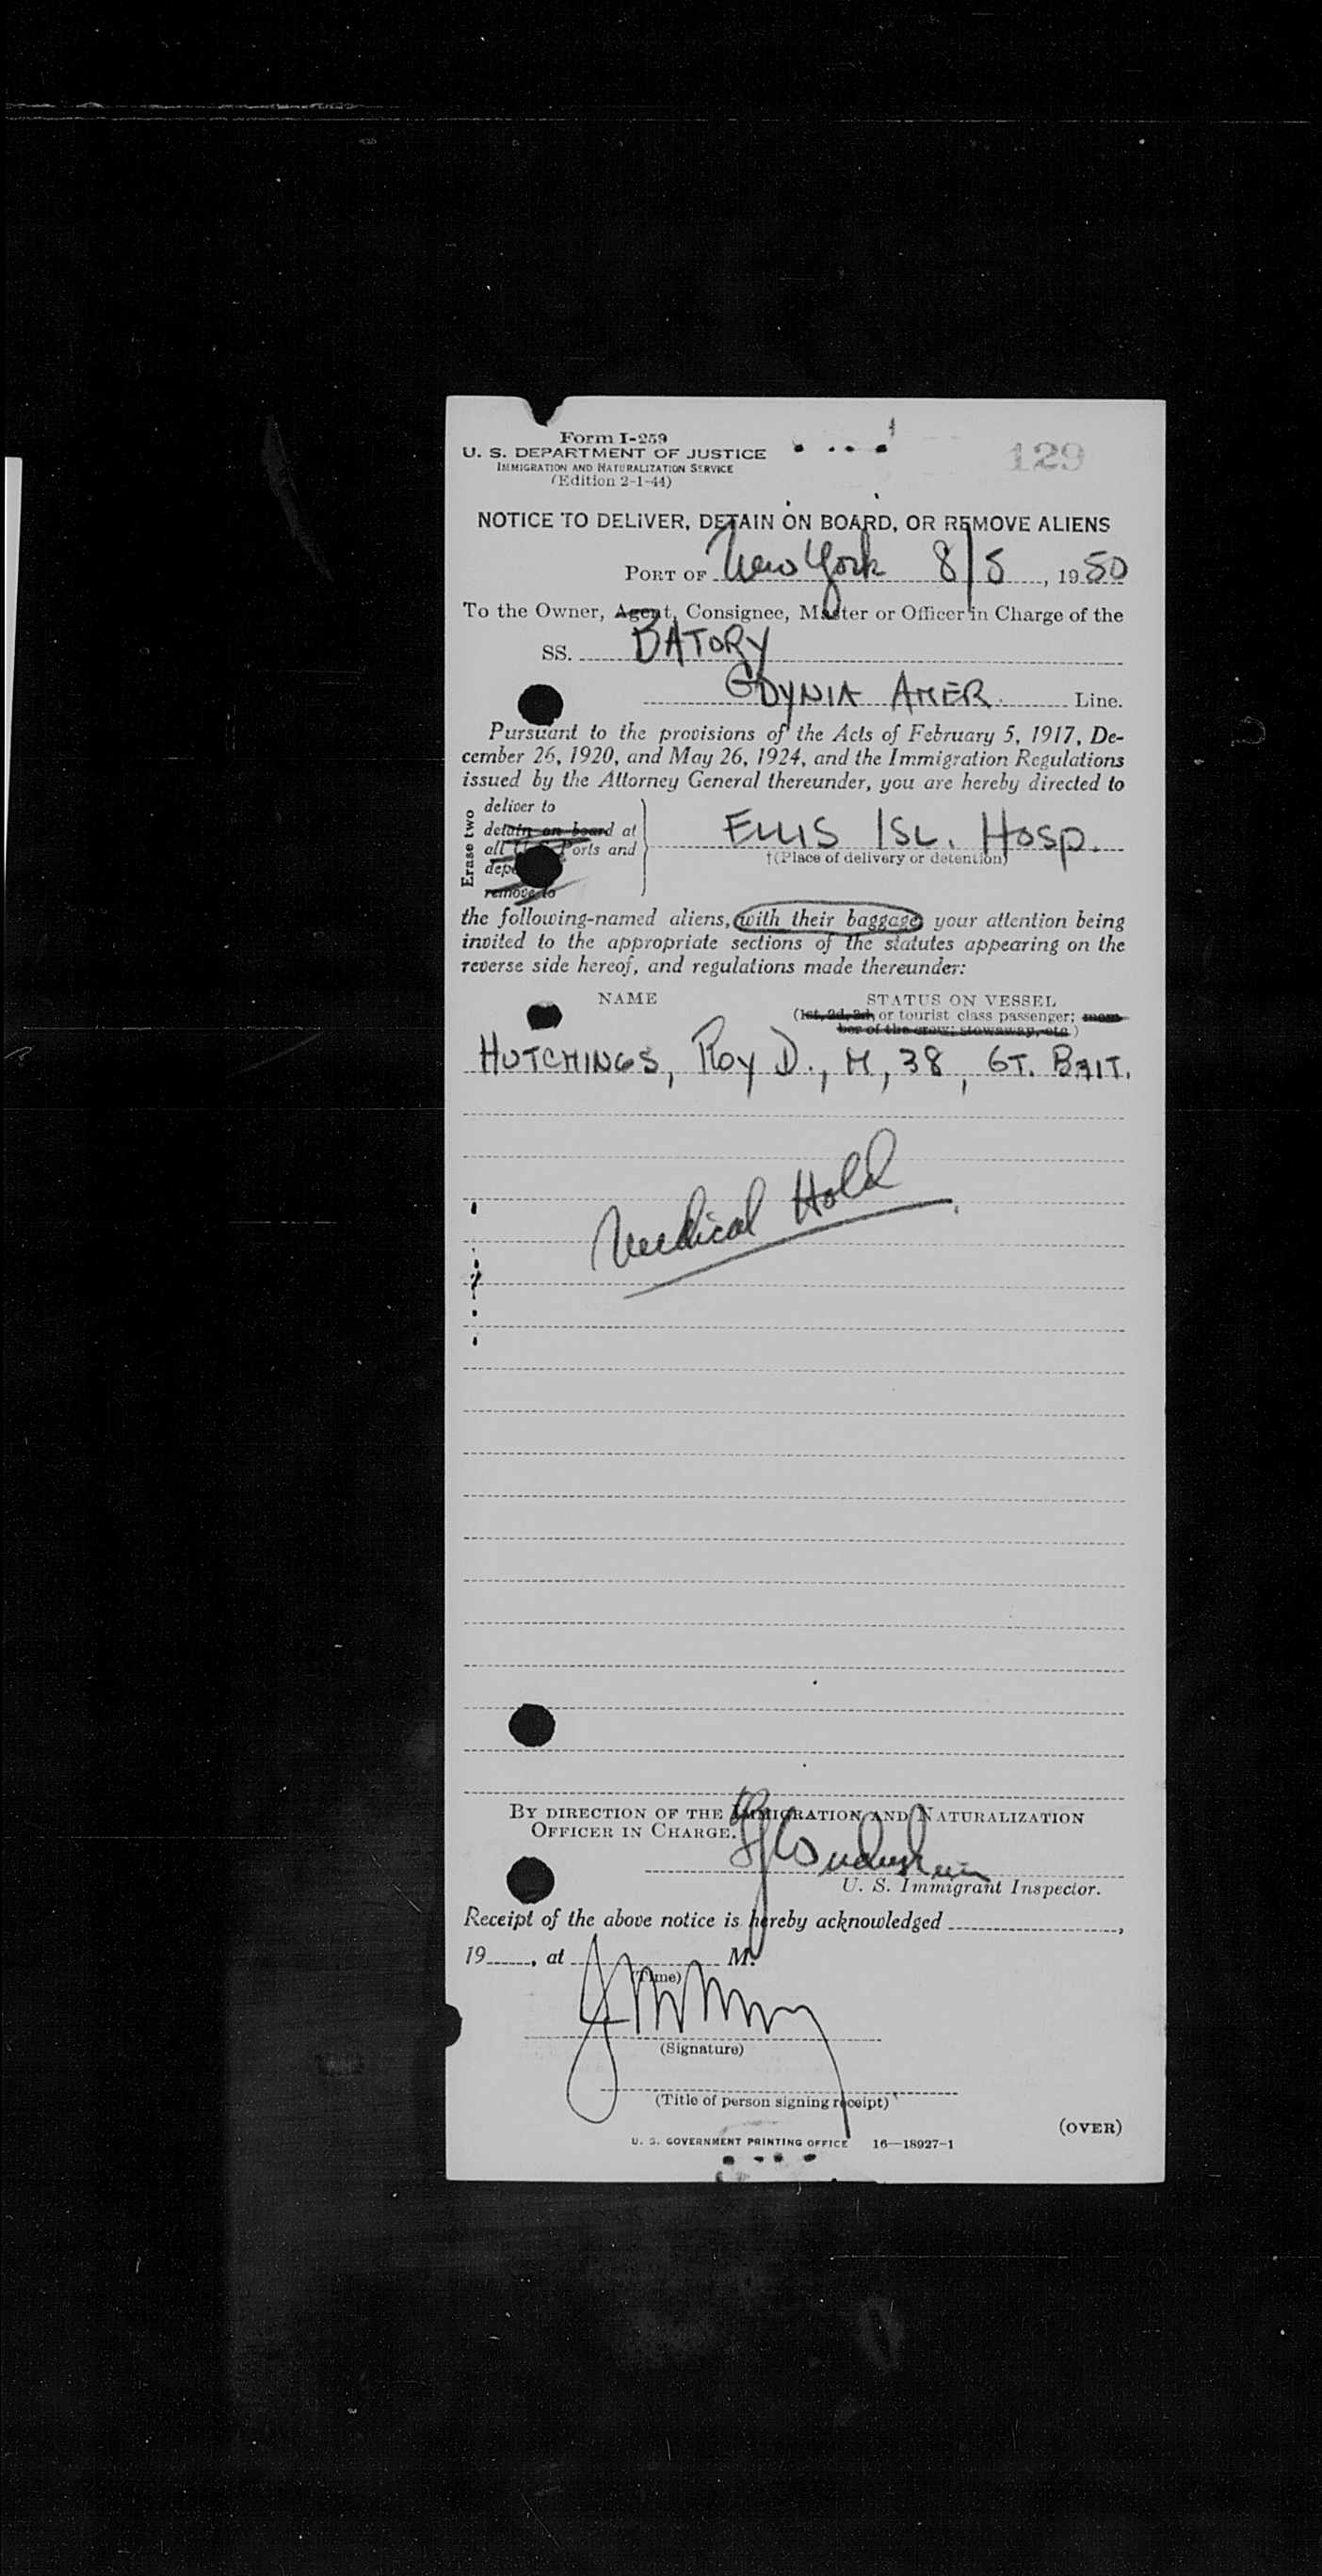 Form I-259
U. S. DEPARTMENT OF JUSTICE
IMMIGRATION AND NATURALIZATION SERVICE
(Edition 2-1-44)
129
NOTICE TO DELIVER, DETAIN ON BOARD, OR REMOVE ALIENS
PORT OF New York 8/5, 1950
To the Owner, Agent, Consignee, Master or Officer in Charge of the
SS. BATORY
GDYNIA AMER. Line.
Pursuant to the provisions of the Acts of February 5, 1917, De-
cember 26, 1920, and May 26, 1924, and the Immigration Regulations
issued by the Attorney General thereunder, you are hereby directed to
Erase two
deliver to
detain on board at
all U. S. Ports and
remove to
ELLIS ISL. HOSP.
†(Place of delivery or detention)
the following-named aliens, with their baggage, your attention being
invited to the appropriate sections of the statutes appearing on the
reverse side hereof, and regulations made thereunder:
NAME
STATUS ON VESSEL
(1st, 2d, 3d, or tourist class passenger; mem-
ber of the crew; stowaway, etc.)
HUTCHINGS, ROY D., M, 38, GT. BRIT.
Medical Hold
BY DIRECTION OF THE IMMIGRATION AND NATURALIZATION
OFFICER IN CHARGE.
U. S. Immigrant Inspector.
Receipt of the above notice is hereby acknowledged ,
19 , at M.
(Time)
(Signature)
(Title of person signing receipt)
(OVER)
U. S. GOVERNMENT PRINTING OFFICE 16—18927-1